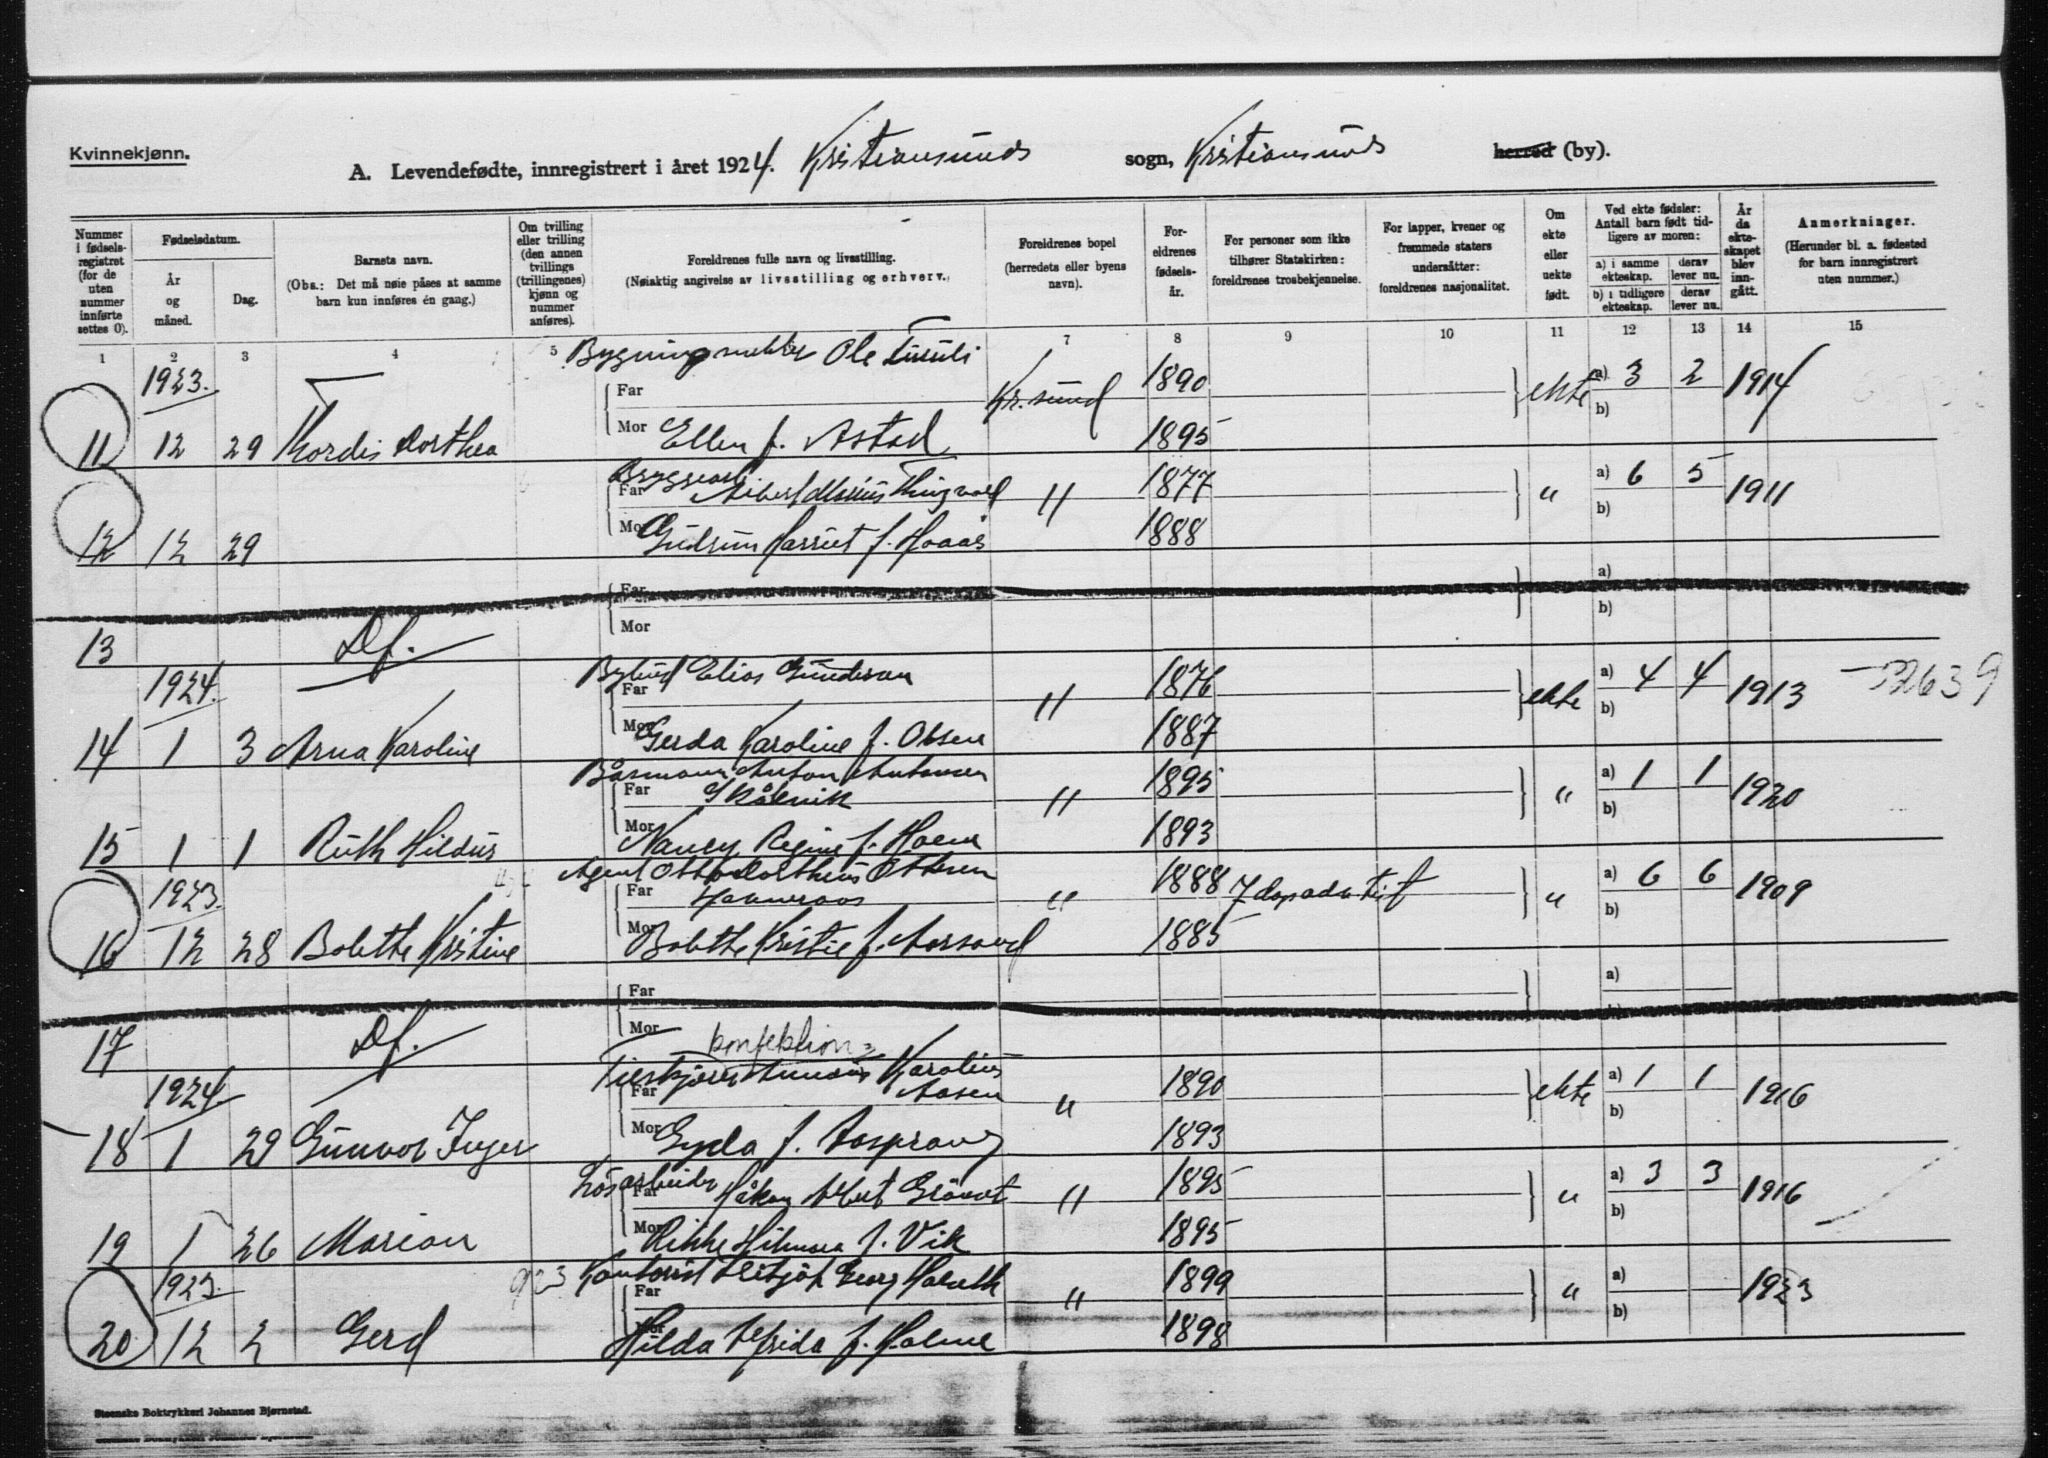 Kvinnekjønn.
A. Levendefødte, innregistrert i året 1924. Kristiansunds sogn, Kristiansunds herred (by).
Nummer i fødsels-registret (for de uten nummer innførte settes 0).
Fødselsdatum.
År og måned.
Dag.
Barnets navn.
(Obs.: Det må nøie påses at samme barn kun innføres én gang.)
Om tvilling eller trilling (den annen tvillings (trillingenes) kjønn og nummer anføres).
Foreldrenes fulle navn og livsstilling.
(Nøiaktig angivelse av livsstilling og erhverv.)
Foreldrenes bopel (herredets eller byens navn).
For-eldrenes fødsels-år.
For personer som ikke tilhører Statskirken: foreldrenes trosbekjennelse.
For lapper, kvener og fremmede staters undersåtter: foreldrenes nasjonalitet.
Om ekte eller uekte født.
Ved ekte fødsler: Antall barn født tid-ligere av moren:
a) i samme ekteskap.
derav lever nu.
b) i tidligere ekteskap.
derav lever nu.
År da ekte-skapet blev inn-gått.
Anmerkninger.
(Herunder bl. a. fødested for barn innregistrert uten nummer.)
1 2 3 4 5 7 8 9 10 11 12 13 14 15
1923.
Ole
Far Kr.sund 1890 ekte a) 3 2 1914
b)
11 12 29 Dorthea Mor Ellen f. Astad 1895
Far Thingvold " 1877 " a) 6 5 1911
b)
12 12 29 Mor Gudrun Harriet f. Hoaas 1888
Far a)
b)
13 Df. Mor
1924. Elias Gundersen
Far " 1876 ekte a) 4 4 1913
b)
14 1 3 Arna Karoline Mor Gerda Karoline f. Olsen 1887
Anton Antonsen
Far " 1895 " a) 1 1 1920
b)
15 1 1 Ruth Hildur Mor Nancy Regine f. 1893
1923. Agent Otto Ottesen
Far " 1888 7 dags adventist " a) 6 6 1909
b)
16 12 28 Bolette Kristine Mor Bolethe Kristie f. 1885
Far a)
17 Df. Mor
konfektion
1924 Karolius
Far Aasen " 1890 ekte a) 1 1 1916
b)
18 1 29 Gunvor Inger Mor Gyda f. Aasprang 1893
Løsarbeider Håkon
Far " 1895 " a) 3 3 1916
b)
19 1 26 Marion Mor Rikke f. Vik 1895
1923. 923 Kontorist Georg
Far " 1899 " a) 1923
b)
20 12 2 Gerd Mor Hilda Alfrida f. Holme 1898
Steenske Boktrykkeri Johannes Bjørnstad.